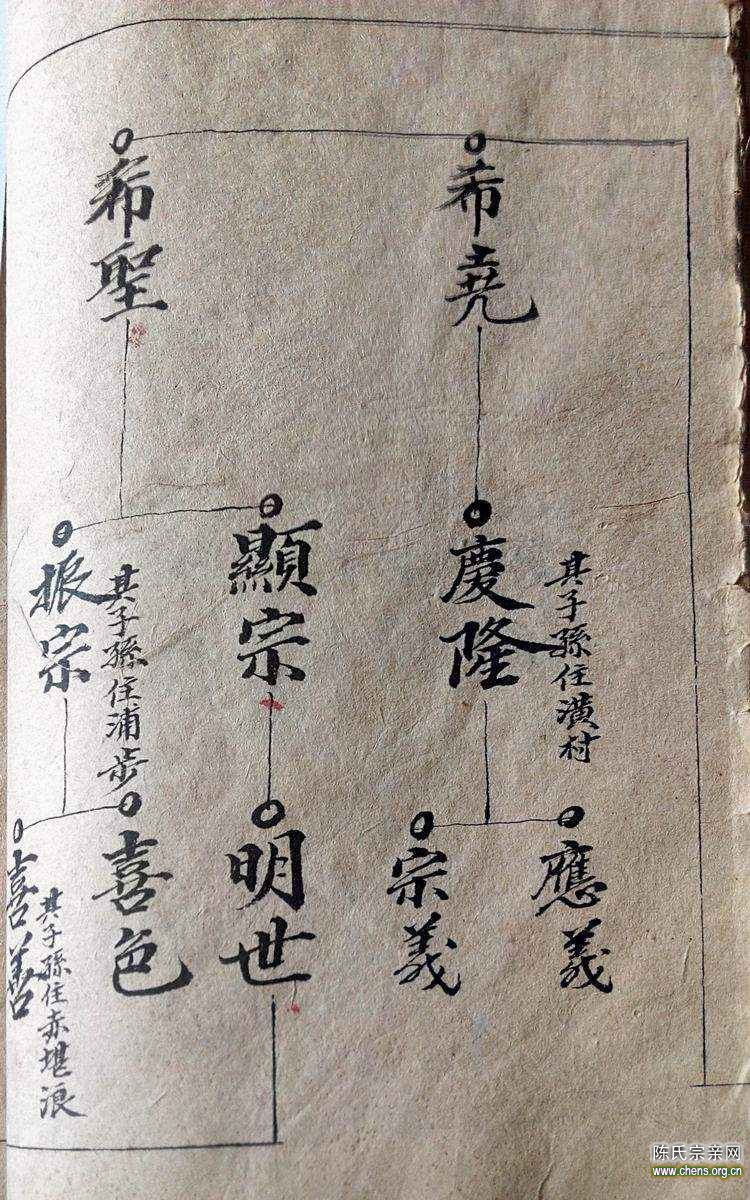 希堯
希聖
慶隆
其子孫住潢村
顯宗
振宗
其子孫住浦步
應義
宗義
明世
喜色
喜善
其子孫住赤堪浪
陈氏宗亲网
www.chens.org.cn